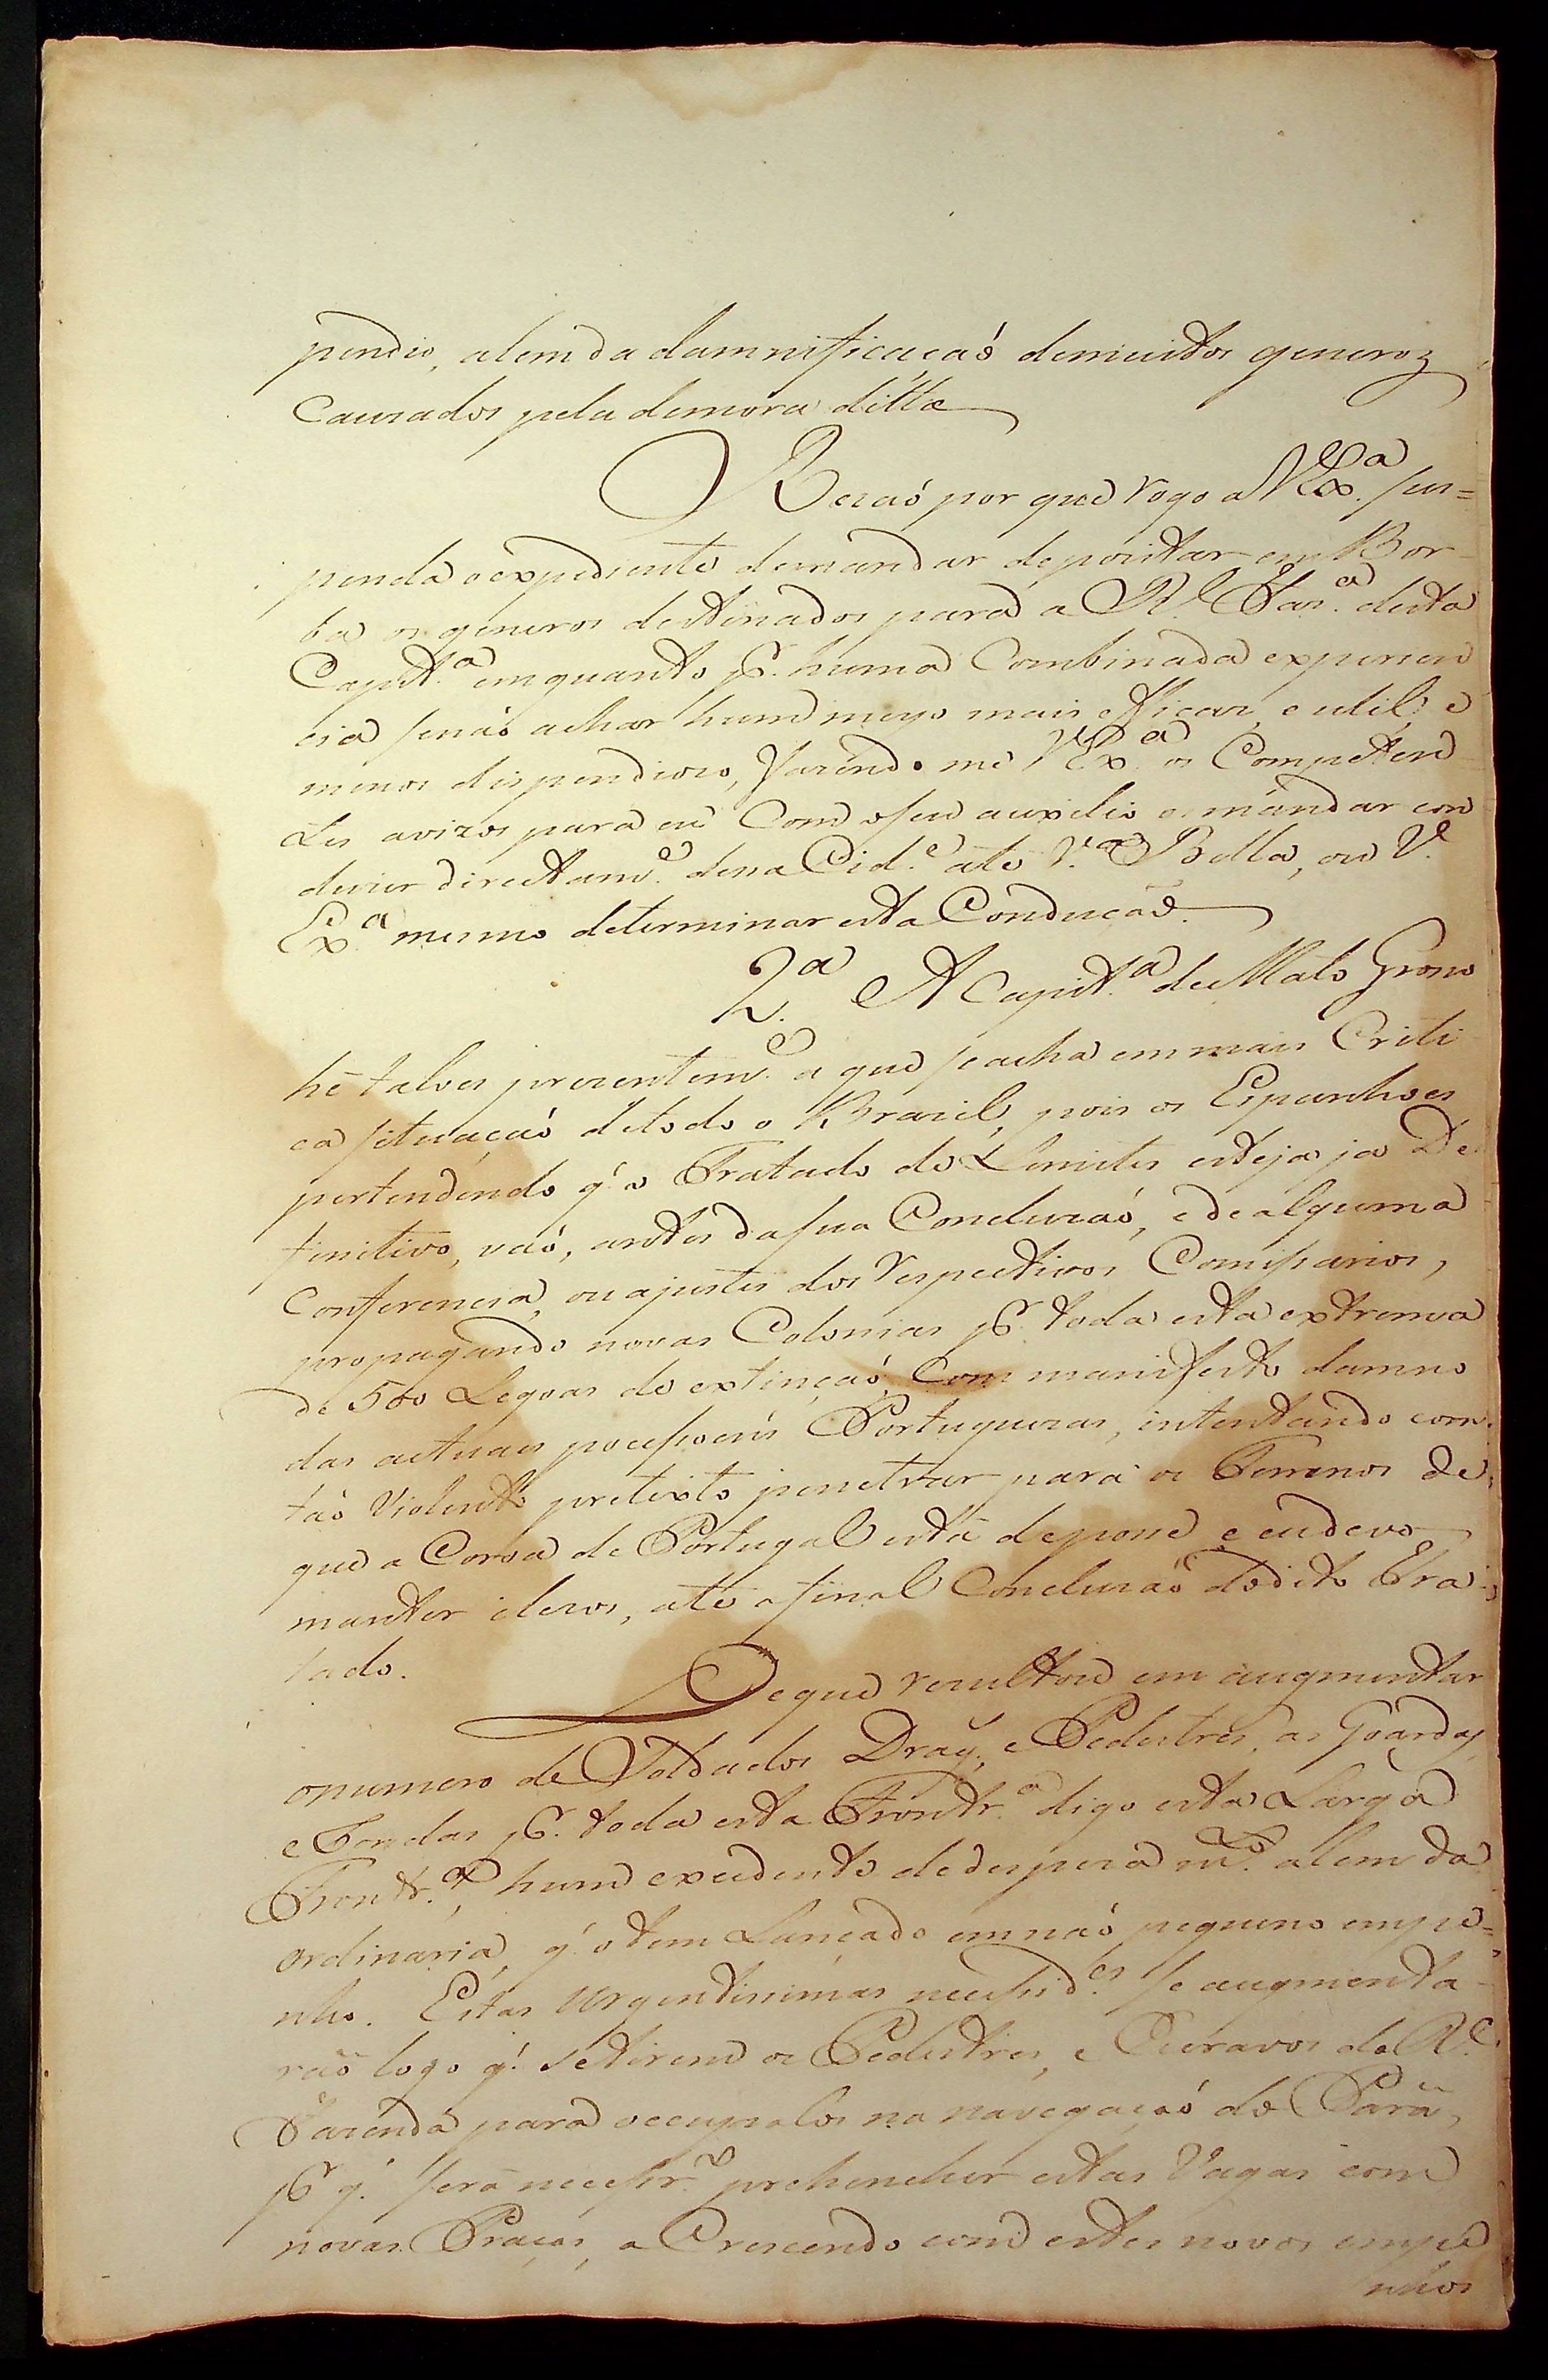 pendio, alem da damnificaçaõ demuitos generoz
Cauzados pela demora ditta
Rezaõ por que rogo a VEx.ª sus=
penda o expediente demandar depozitar em Bor-
ba os generos destinados para a R.l Faz.ª desta
Capit.ª emquanto pr. huma Combinada experien
cia senaõ achar hum meyo mais efficaz, e util, e
menos dispendiozo, fazendo me VEx.ª os Competen-
tes avizos para eu Com o seu auxilio os mandar con
duzir directam.e dessa Cid.e até V.ª Bella, ou V.
Ex.ª mesmo determinar esta Conducaõ.
2.ª A Capit.ª de Mato Grosso
hé talves prezentem.e a que se acha em mais Criti
ca situaçaõ detodo o Brazil, pois os Espanhoes
pertendendo q' o Tratado de Limites esteja ja De
finitivo, vaõ, antes da sua Concluzaõ, e de alguma
Conferencia, ou ajustes dos respectivos Comissarios,
propagando novas Colonias pr. toda esta extrema
de 500 Legoas de extinçaõ, Com manifesto damno
das actuaes pocessoens Portuguezas, intentando com
taõ Violento pretexto penetrar para os Terrenos de
que a Coroa de Portugal está de posse, e eu devo
manter ilezos, até a final Concluzaõ do dito Tra-
tado.
De que rezultou em augmentar
o numero de Soldados Drag.s, e Pedestres, as Goardas,
e Rondas pr. toda esta Frontr.ª digo esta Larga
Frontr.ª, hum excedente de despeza m.to alem da
ordinaria, q' o tem Lançado em naõ pequeno empe=
nho. Estas Urgentissimas necessid.es se augmenta-
raõ logo q' se tirem os Pedestres, e Escravos da R.l
Fazenda para occupalos na navegaçaõ do Pará,
pr. q' será necessr.o prehencher estas Vagas com
novas Praças, a Crescendo com estes novos empe
nhos